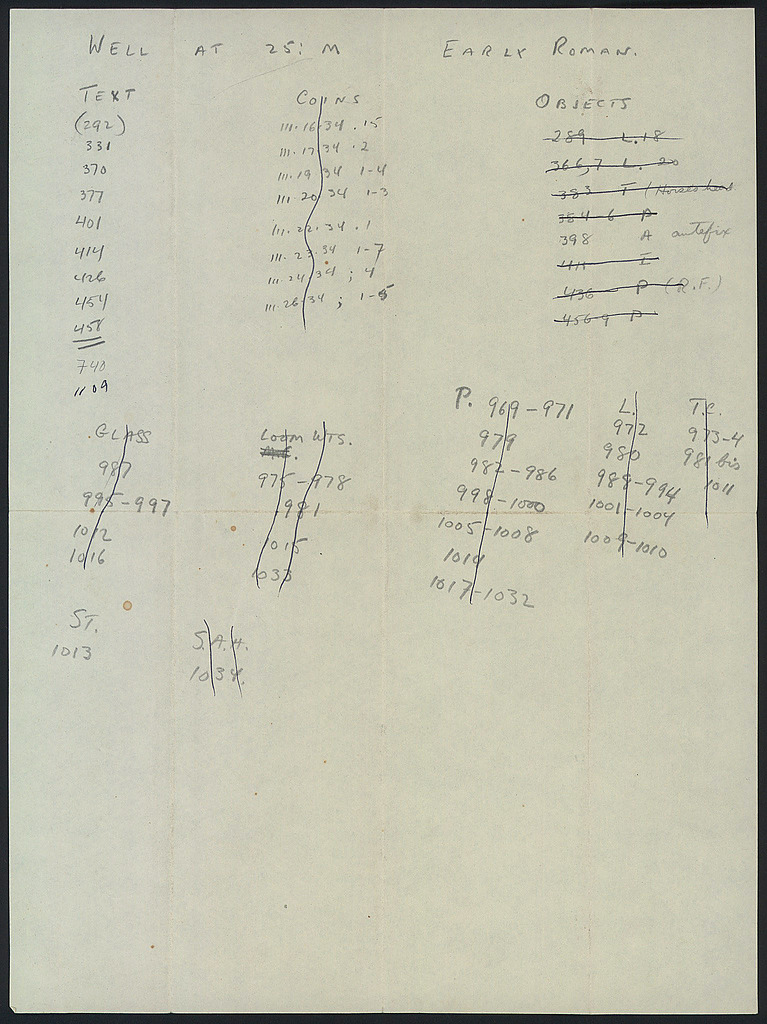 WELL AT 25: M EARLY ROMAN.
TEXT
(292)
331
370
377
401
414
426
454
458
740
1109
COINS
III. 16 34 . 15
III. 17 34 . 2
III. 19 34 1-4
III. 20 34 1-3
III. 22. 34 . 1
III. 23 34 1-7
III. 24 34 ; 4
III. 26 34 ; 1-5
OBJECTS
289 L. 18
366,7 L. 20
383 T (Horses head
384-6 P
398 A antefix
411 I
436 P (R.F.)
456-9 P
GLASS
987
995-997
1012
1016
LOOM WTS.
975-978
981
1015
1033
P. 969-971
979
982-986
998-1000
1005-1008
1014
1017-1032
L.
972
980
988-994
1001-1004
1009-1010
T.C.
973-4
981 bis
1011
ST.
1013
S.A.H.
1034.